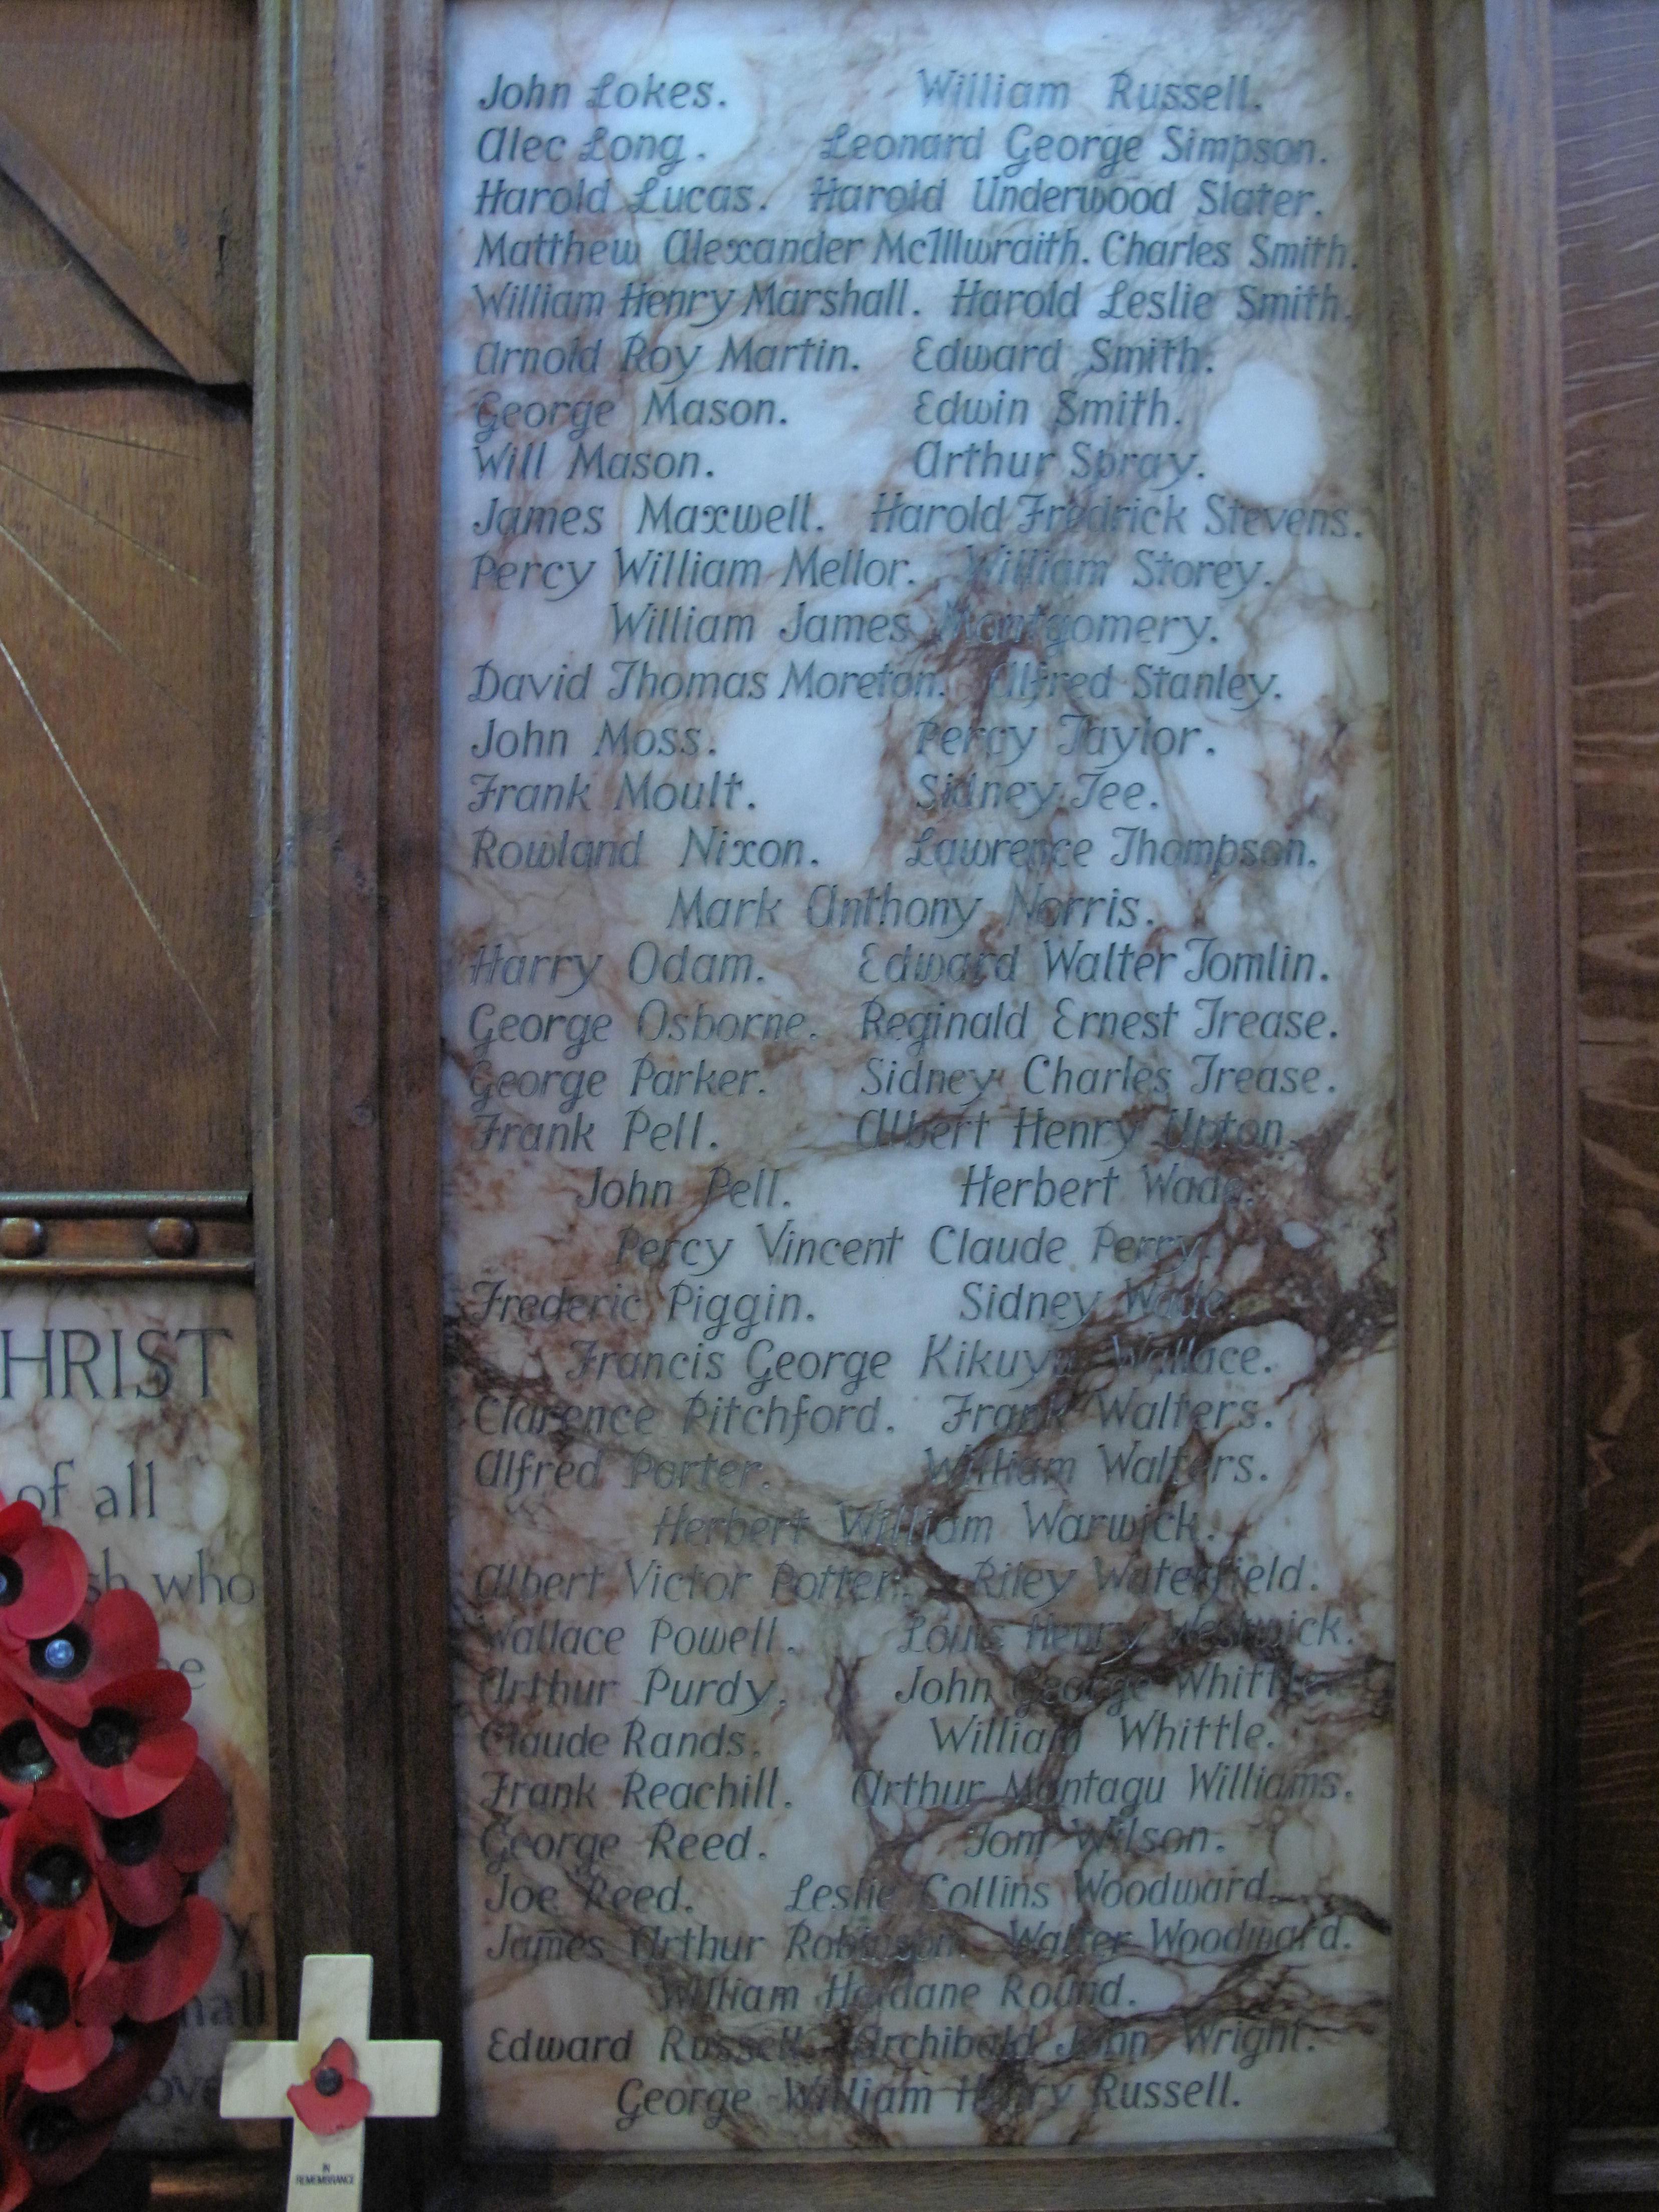 John Lokes. William Russell.
Alec Long. Leonard George Simpson.
Harold Lucas. Harold Underwood Slater.
Matthew Alexander McIllwraith. Charles Smith.
William Henry Marshall. Harold Leslie Smith.
Arnold Roy Martin. Edward Smith.
George Mason. Edwin Smith.
Will Mason. Arthur Spray.
James Maxwell. Harold Fredrick Stevens.
Percy William Mellor. William Storey.
William James Montgomery.
David Thomas Moreton. Alfred Stanley.
John Moss. Percy Taylor.
Frank Moult. Sidney Tee.
Rowland Nixon. Lawrence Thompson.
Mark Anthony Norris.
Harry Odam. Edward Walter Tomlin.
George Osborne. Reginald Ernest Trease.
George Parker. Sidney Charles Trease.
Frank Pell. Albert Henry Upton.
John Pell. Herbert Wade.
Percy Vincent Claude Perry.
Frederic Piggin. Sidney Wade.
Francis George Kikuyu Wallace.
Clarence Pitchford. Frank Walters.
Alfred Porter. William Walters.
Herbert William Warwick.
Albert Victor Potter. Riley Waterfield.
Wallace Powell. Louis Henry Westwick.
Arthur Purdy. John George Whittle.
Claude Rands. William Whittle.
Frank Reachill. Arthur Montagu Williams.
George Reed. Tom Wilson.
Joe Reed. Leslie Collins Woodward.
James Arthur Robinson. Walter Woodward.
William Haldane Round.
Edward Russell. Archibald John Wright.
George William Henry Russell.
HRIST
of all
sh who
ee
y
hall
ove
IN
REMEMBRANCE